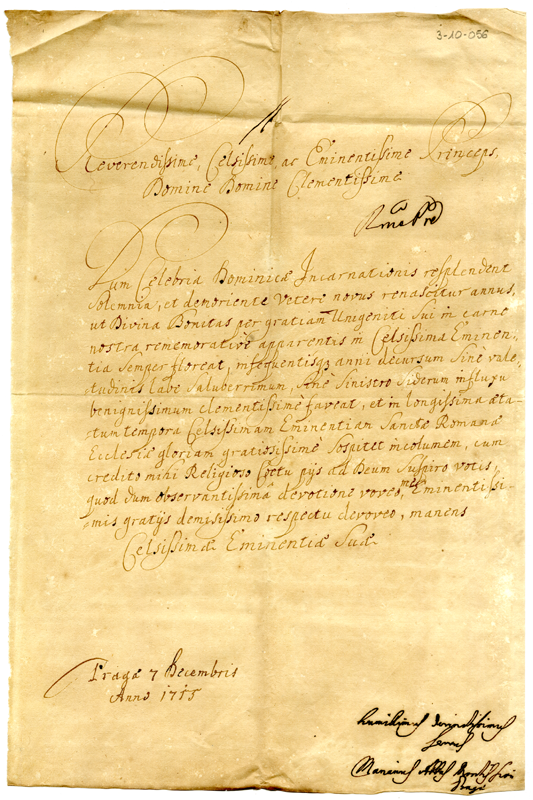 3-10-056
Reverendissime, Celsissime ac Eminentissime Princeps,
Domine Domine Clementissime
Dum Celebria Dominicæ Incarnationis resplendent
Solemnia, et demoriente Veteri novus renascitur annus,
ut Divina Bonitas per gratiam Unigeniti Sui in carne
nostra rememorativè apparentis in Celsissima Eminen-
tia Semper floreat, insequentisq; anni decursum Sine vale-
tudinis labe Saluberrimum, Sine Sinistro Siderum influxu
benignissimum clementissimè faveat, et in longissima æta-
tum tempora Celsissimam Eminentiam Sanctæ Romanæ
Ecclesiæ gloriam gratiosissimè Sospitet incolumem, cum
credito mihi Religioso Coetu pijs ad Deum Suspiro votis,
quod dum observantissimâ devotione voveo, me Eminentissi-
mis gratijs demississimo respectu devoveo, manens
Celsissimæ Eminentiæ Suæ
Pragæ 7 Decembris
Anno 1715
Servus
Abbas